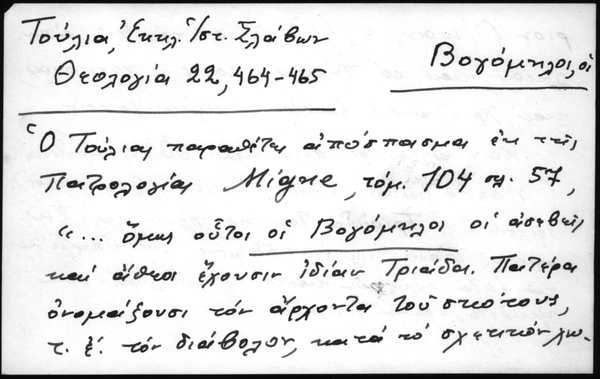 Τούλια, Ἐκκλ. Ἱστ. Σλάβων
Βογόμηλοι, οἱ
Θεολογία 22, 464-465
Ὁ Τούλιας παραθέτει ἀπόσπασμα ἐκ τῆς
Πατρολογίας Migne, τόμ. 104 σελ. 57,
“... ὅμως οὗτοι οἱ Βογόμηλοι οἱ ἀσεβεῖς
καί ἄθεοι ἔχουσιν ἰδίαν Τριάδα. Πατέρα
ὀνομάζουσι τόν ἄρχοντα τοῦ σκότους,
τ. ἔ. τόν διάβολον, κατά τό σχετικόν χω-